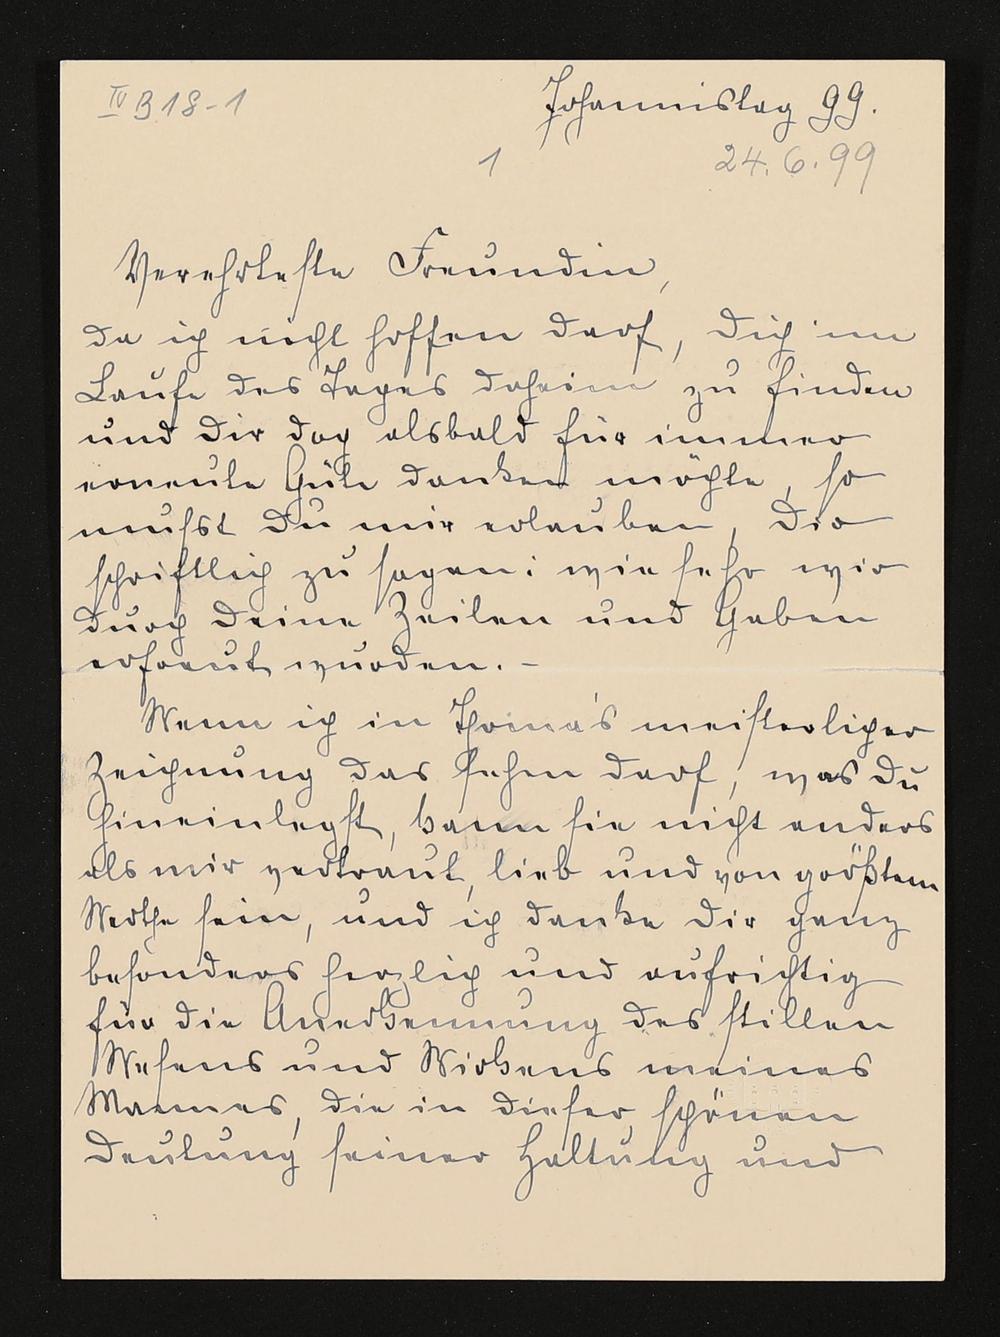 IV B 18-1
Johannistag 99.
1
24.6.99
Verehrteste Freundin,
da ich nicht hoffen darf, Dich im
Laufe des Tages daheim zu finden
und Dir doch alsbald für immer
erneute Güte danken möchte, so
mußst Du mir erlauben, Dir
schriftlich zu sagen: wie sehr wir
durch Deine Zeilen und Gaben
erfreut wurden. –
Wenn ich in Thoma's meisterlicher
Zeichnung das sehen darf, was Du
hineinlegst, kann sie nicht anders
als mir vertraut, lieb und von größtem
Werthe sein, und ich danke Dir ganz
besonders herzlich und aufrichtig
für die Anerkennung des stillen
Wesens und Wirkens meines
Mannes, die in dieser schönen
Deutung seiner Haltung und